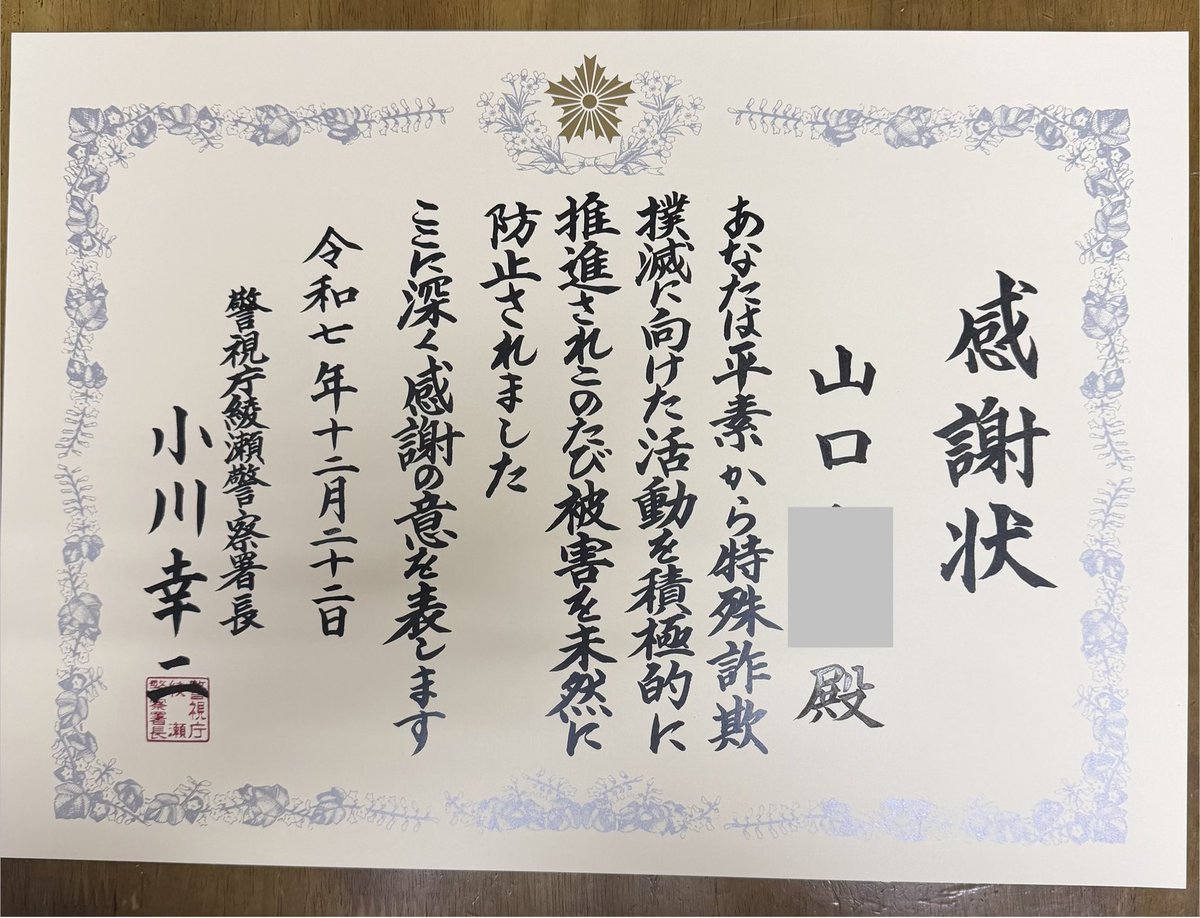 感謝状
山口 殿
あなたは平素から特殊詐欺
撲滅に向けた活動を積極的に
推進されこのたび被害を未然に
防止されました
ここに深く感謝の意を表します
令和七年十二月二十二日
警視庁綾瀬警察署長
小川幸二
警視庁
綾瀬
警察署長